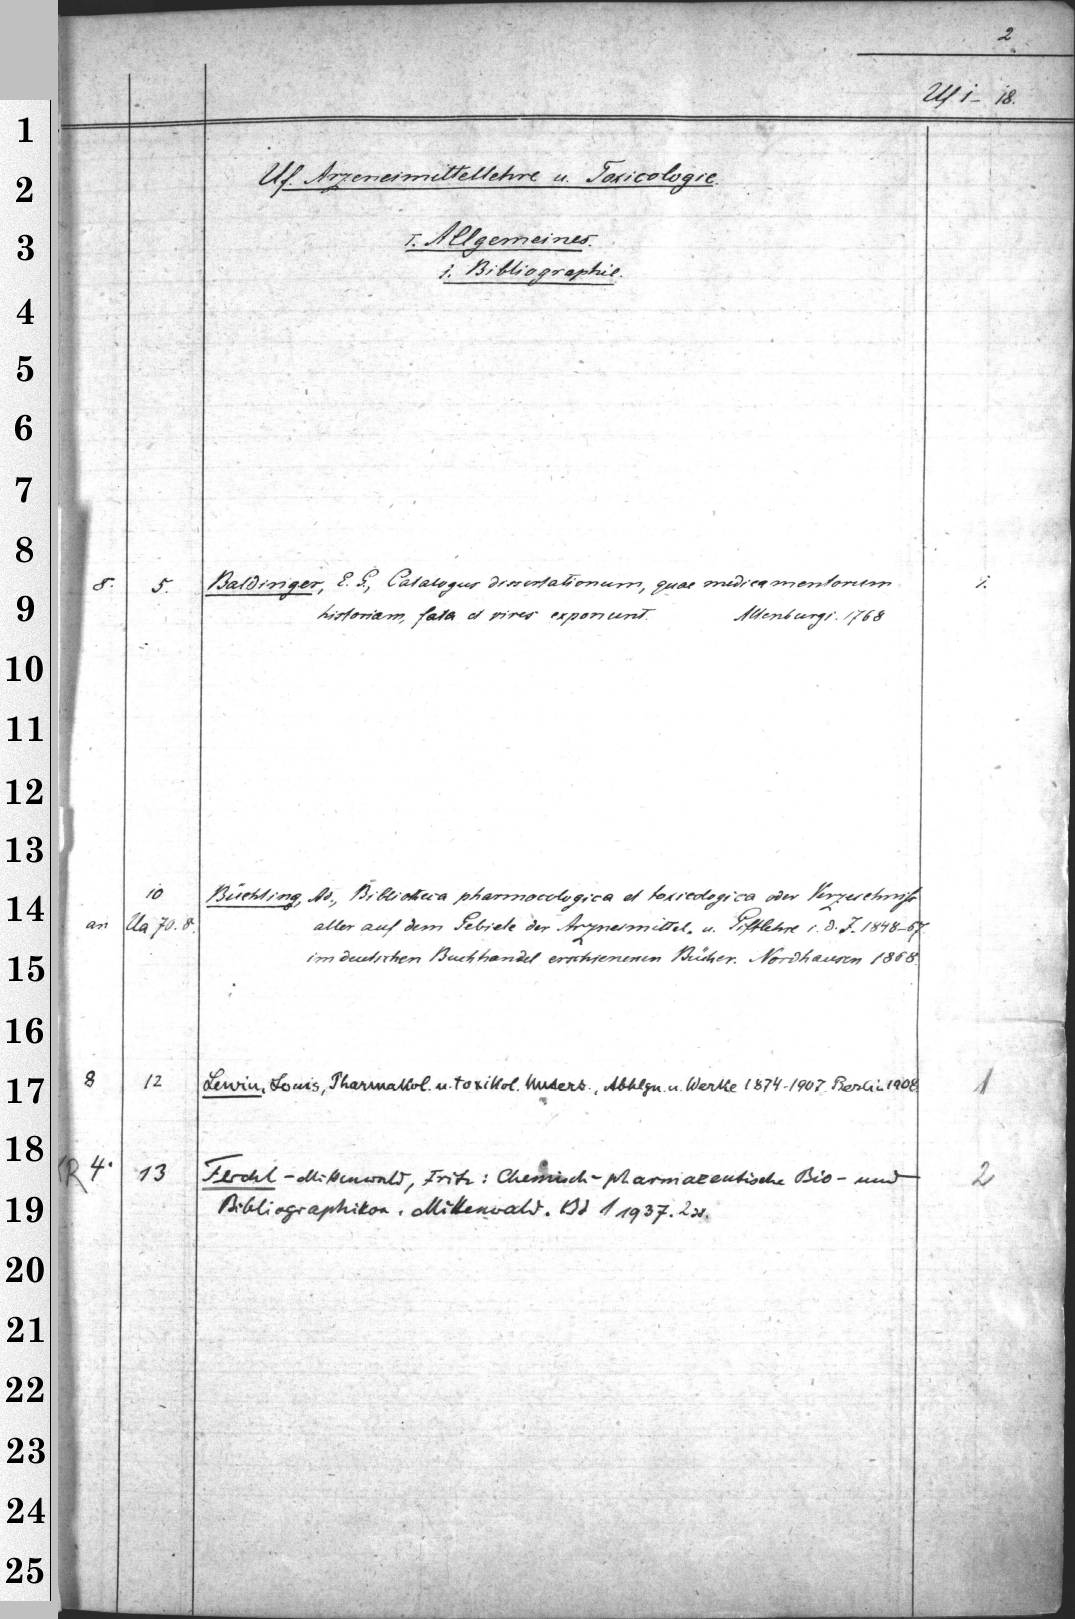 2
Uf 1- 18.
Uf. Arzeneimittellehre u. Toxicologie.
I. Allgemeines.
1. Bibliographie.
8. 5. Baldinger, E. G., Catalogus dissertationum, quae medicamentorum 1.
historiam, fata et vires exponunt. Altenburgi. 1768
10 Büchting, Ad., Bibliotheca pharmacologica et toxicologica oder Verzeichniß
an Ua 70. 8. aller auf dem Gebiete der Arzneimittel- u. Giftlehre i. d. J. 1848-67
im deutschen Buchhandel erschienenen Bücher. Nordhausen 1868.
8 12 Lewin, Louis, Pharmakol. u. toxikol. Unters., Abhlgn. u. Werke 1874-1907. Berlin 1908. 1
R 4° 13 Ferchl-Mittenwald, Fritz: Chemisch-pharmazeutische Bio- und 2
Bibliographikon. Mittenwald. Bd 1 1937. 2
1
2
3
4
5
6
7
8
9
10
11
12
13
14
15
16
17
18
19
20
21
22
23
24
25